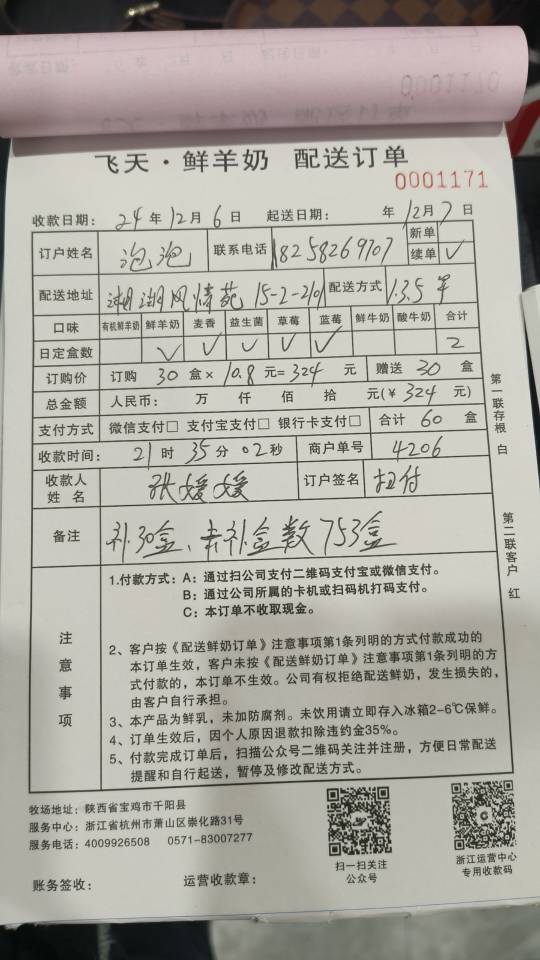 飞天·鲜羊奶 配送订单
0001171
收款日期： 24年12月6日 起送日期： 年12月7日
订户姓名 泡泡 联系电话 18258269707 新单
续单 ✓
配送地址 湖湖风情苑 15-2-2101 配送方式 1.3.5 早
口味 有机鲜羊奶 鲜羊奶 麦香 益生菌 草莓 蓝莓 鲜牛奶 酸牛奶 合计
日定盒数 ✓ ✓ ✓ ✓ ✓ 2
订购价 订购 30 盒× 10.8 元= 324 元 赠送 30 盒
总金额 人民币： 万 仟 佰 拾 元(￥ 324 元)
支付方式 微信支付□ 支付宝支付□ 银行卡支付□ 合计 60 盒
收款时间： 21时 35分 02秒 商户单号 4206
收款人姓名 张媛媛 订户签名 扫付
备注 补30盒、未补盒数753盒
第一联存根 白
第二联客户 红
注意事项
1.付款方式：A：通过扫公司支付二维码支付宝或微信支付。
B：通过公司所属的卡机或扫码机打码支付。
C：本订单不收取现金。
2、客户按《配送鲜奶订单》注意事项第1条列明的方式付款成功的
本订单生效，客户未按《配送鲜奶订单》注意事项第1条列明的方
式付款的，本订单不生效。公司有权拒绝配送鲜奶，发生损失的，
由客户自行承担。
3、本产品为鲜乳，未加防腐剂。未饮用请立即存入冰箱2-6℃保鲜。
4、订单生效后，因个人原因退款扣除违约金35%。
5、付款完成订单后，扫描公众号二维码关注并注册，方便日常配送
提醒和自行起送，暂停及修改配送方式。
牧场地址：陕西省宝鸡市千阳县
服务中心：浙江省杭州市萧山区崇化路31号
服务电话：4009926508 0571-83007277
扫一扫关注
公众号
浙江运营中心
专用收款码
账务签收： 运营收款章：